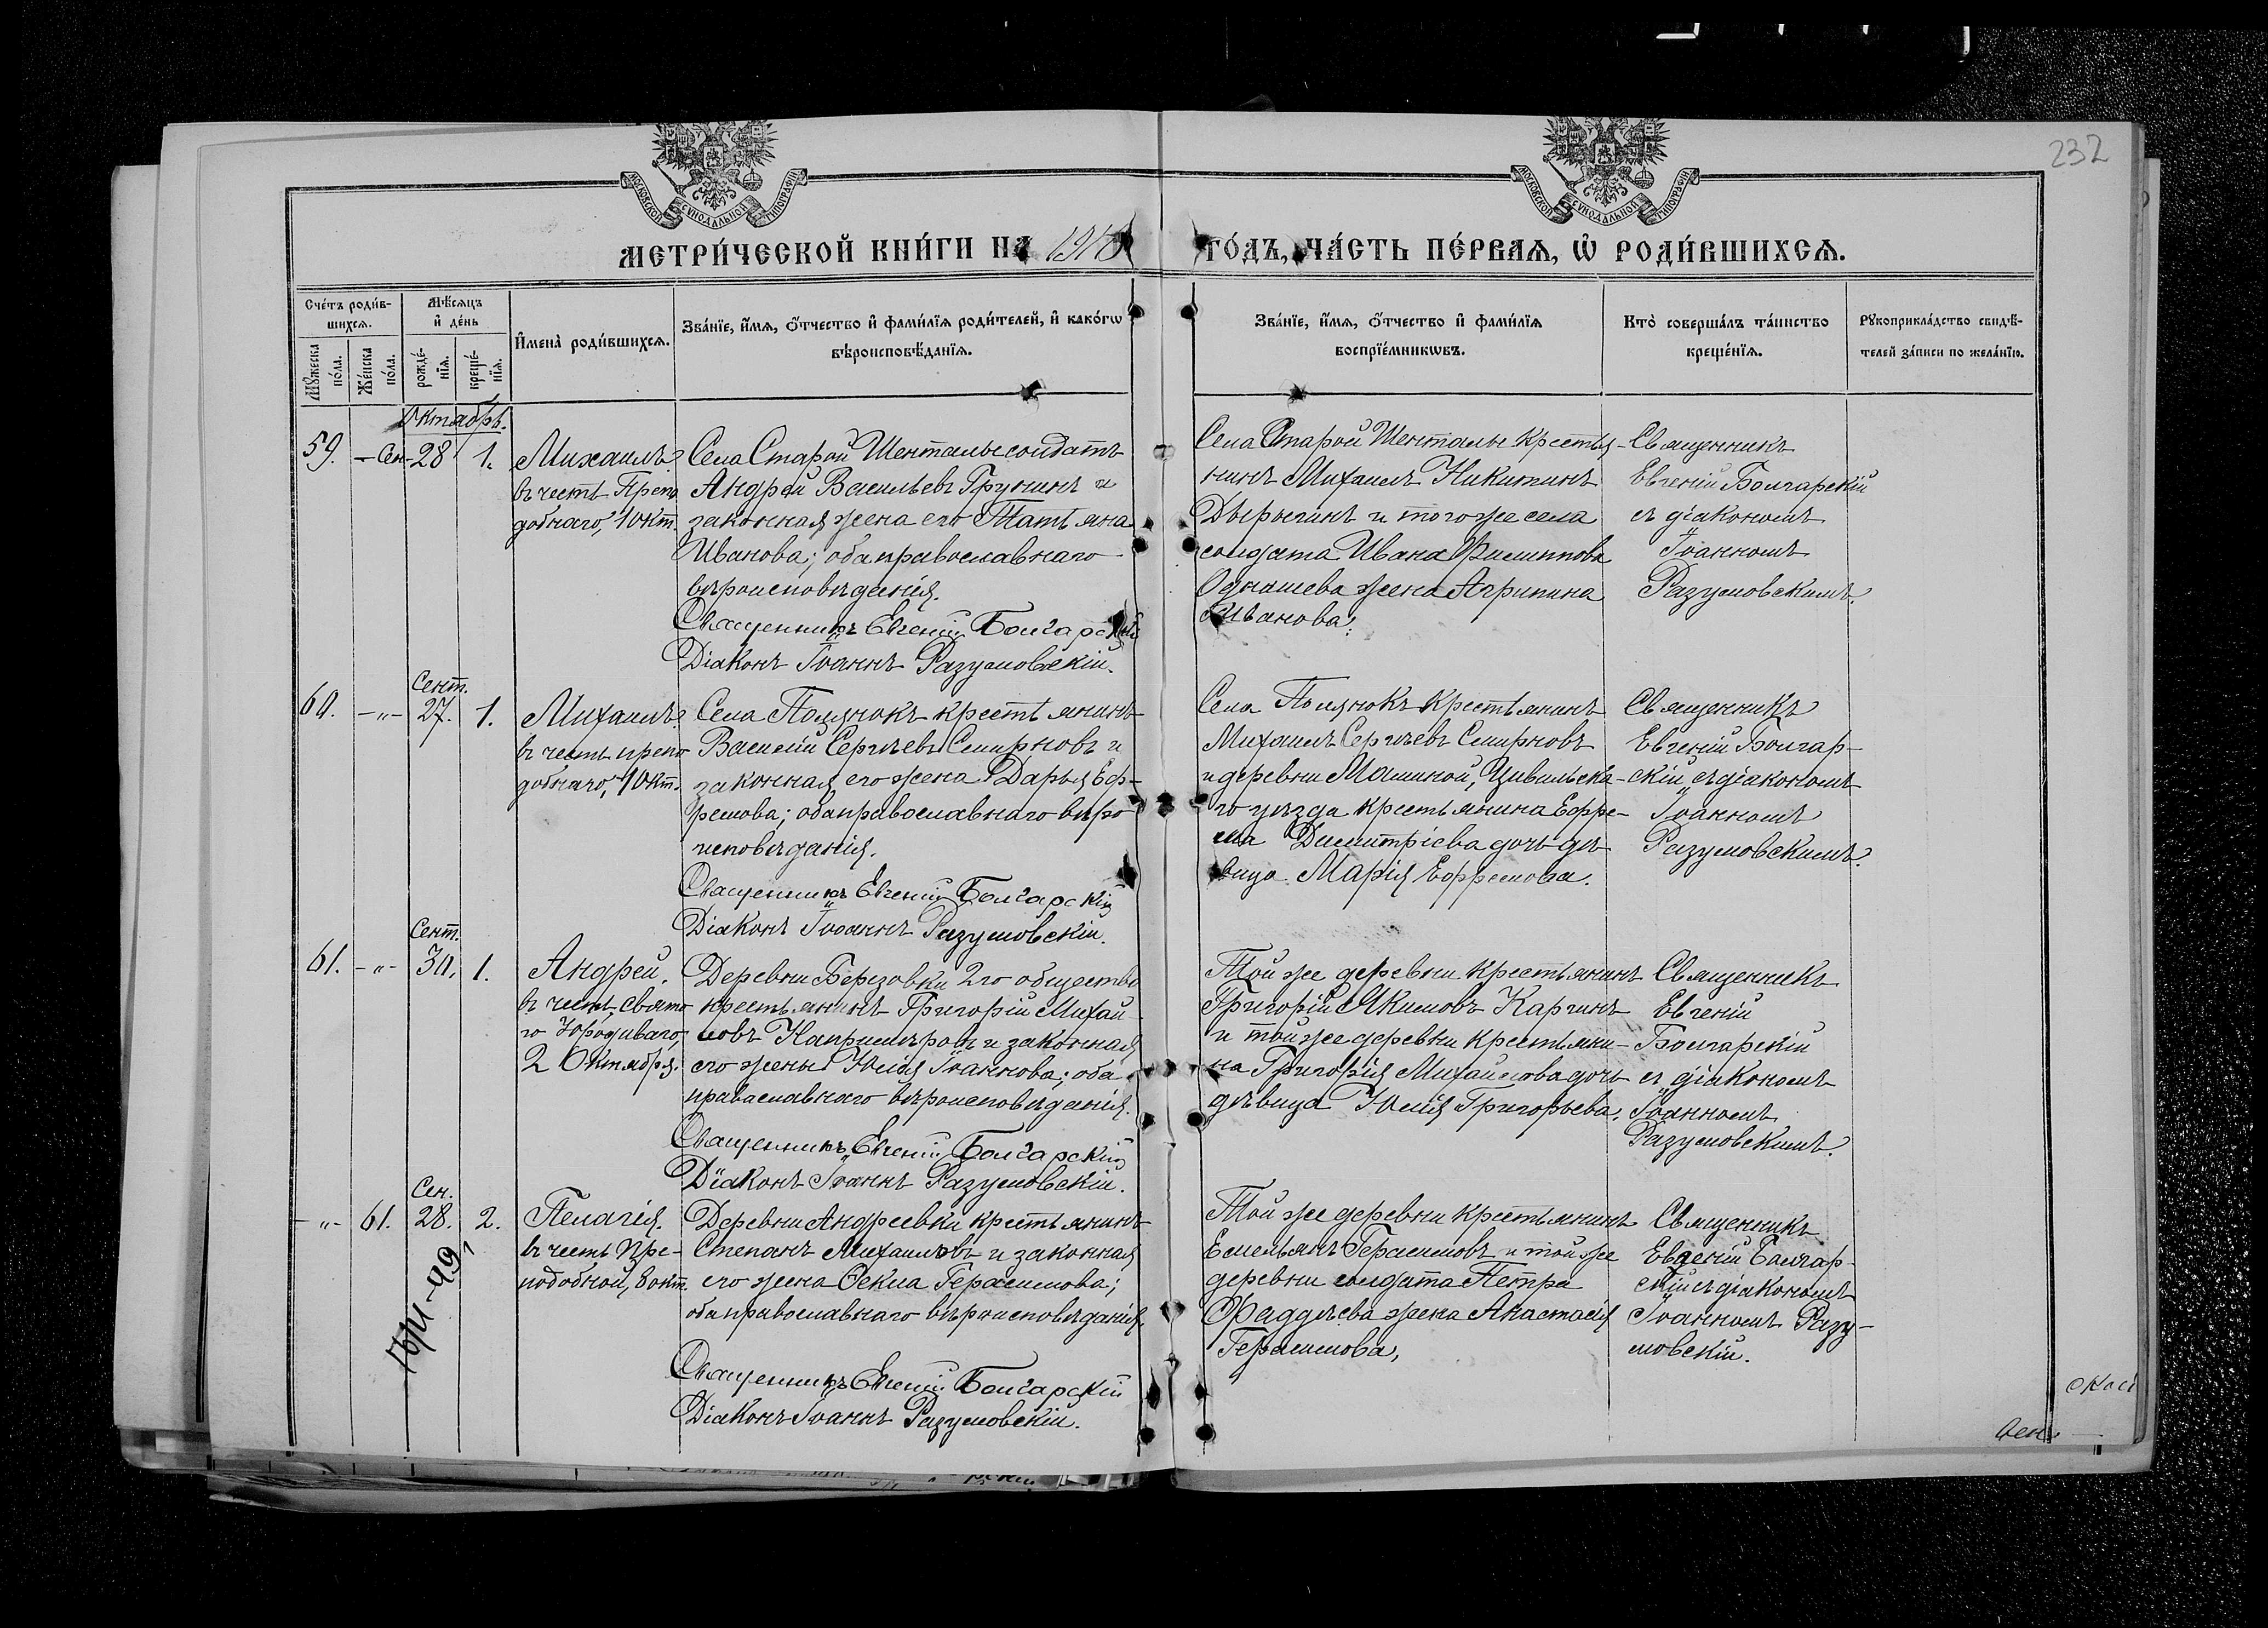 232
МОСКОВСКОЙ СѴНОДАЛЬНОЙ ТИПОГРАФІИ
МОСКОВСКОЙ СѴНОДАЛЬНОЙ ТИПОГРАФІИ
МЕТРИ́ЧЕСКОЙ КНИ́ГИ НА
ГО́ДЪ, ЧА́СТЬ ПЕ́РВАЯ, Ѡ РОДИ́ВШИХСЯ.
Сче́тъ роди́в-
шихся.
Мѣ́сяцъ
и҆ де́нь
Му́жеска
по́ла.
Же́нска
по́ла.
рожде́-
нїя.
креще́-
нїя.
И҆мена̀ роди́вшихся.
Зва́нїе, и҆́мя, ѻ҆́тчество и҆ фами́лїя роди́телей, и҆ како́гѡ
вѣроисповѣ́данїя.
Зва́нїе, и҆́мя, ѻ҆́тчество и҆ фами́лїя
воспрїе́мникѡвъ.
Кто̀ соверша́лъ та́инство
креще́нїя.
Рукоприкла́дство свидѣ́-
телей за́писи по жела́нїю.
Октябрь.
59. — Сен- 28 1.
Михаилъ.
въ честь Препо
добнаго, 1 Окт.
Села Старой Шенталы солдатъ
Андрей Васильевъ Грунинъ и
законная жена его Татьяна
Иванова; оба православнаго
вѣроисповѣданія.
Священникъ Евгеній Болгарскій
Діаконъ Іоаннъ Разумовскій.
Села Старой Шенталы крестья-
нинъ Михаилъ Никитинъ
Дырыгинъ и того же села
солдата Ивана Филиппова
Однашева жена Агрипина
Иванова.
Священникъ
Евгеній Болгарскій
съ діакономъ
Іоанномъ
Разумовскимъ.
Сент.
60. —"— 27. 1.
Михаилъ.
въ честь препо
добнаго, 1 Окт.
Села Полянокъ крестьянинъ
Василій Сергѣевъ Смирновъ и
законная его жена Дарья Еф-
ремова; оба православнаго вѣро
исповѣданія.
Священникъ Евгеній Болгарскій
Діаконъ Іоаннъ Разумовскій.
Села Полянокъ крестьянинъ
Михаилъ Сергѣевъ Смирновъ
и деревни Машиной, Цивильска-
го уѣзда крестьянина Ефре-
ма Димитріева дочь дѣ-
вица Марія Ефремова.
Священникъ
Евгеній Болгар-
скій съ діакономъ
Іоанномъ
Разумовскимъ.
Сент.
61. —"— 30. 1.
Андрей.
въ честь Свято
го Юродиваго,
2 Октября.
Деревни Березовки 2го общества
крестьянинъ Григорій Михай
ловъ и законная
его жена Юлія Іоаннова; оба
православнаго вѣроисповѣданія.
Священникъ Евгеній Болгарскій
Діаконъ Іоаннъ Разумовскій.
Той же деревни крестьянинъ
Григорій Якимовъ Каргинъ
и той же деревни крестьяни-
на Григорія Михайлова дочь
дѣвица Юлія Григорьева.
Священникъ
Евгеній
Болгарскій
съ діакономъ
Іоанномъ
Разумовскимъ.
Сен.
—"— 61. 28. 2.
Пелагія.
въ честь Пре-
подобной, 8 окт.
Деревни Андреевки крестьянинъ
Степанъ Михаиловъ и законная
его жена Ѳекла Герасимова;
оба православнаго вѣроисповѣданія.
Священникъ Евгеній Болгарскій
Діаконъ Іоаннъ Разумовскій.
Той же деревни крестьянинъ
Емельянъ Герасимовъ и той же
деревни солдата Петра
Фаддѣева жена Анастасія
Герасимова.
Священникъ
Евгеній Болгар-
скій съ діакономъ
Іоанномъ Разу-
мовскій.